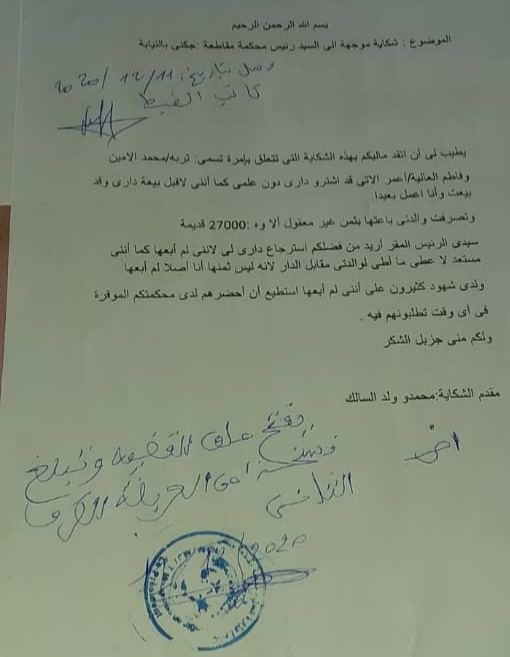 بسم الله الرحمن الرحيم
الموضوع : شكاية موجهة الى السيد رئيس محكمة مقاطعة :جكنى بالنيابة
وصل بتاريخ: 11/ 12/ 2020
كاتب الضبط
يطيب لى أن اتقد ماليكم بهذه الشكاية التى تتعلق بإمرة تسمى: تربه/محمد الامين
وفاطم العالية/أعمر الاتى قد اشترو دارى دون علمى كما أننى لاقبل بيعة دارى وقد
بيعت وأنا اعمل بعيدا.
وتصرفت والدتى باعتها بثمن غير معقول ألا وه :27000 قديمة
سيدى الرئيس المقر أريد من فضلكم استرجاع دارى لى لاننى لم أبعها كما أننى
مستعد لا عطى ما أطى لوالدتى مقابل الدار لانه ليس ثمنها أنا أصلا لم أبعها
ولدى شهود كثيرون على أننى لم أبعها استطيع أن أحضرهم لدى محكمتكم الموقرة
فى أى وقت تطلبونهم فيه .
ولكم منى جزبل الشكر
مقدم الشكاية:محمدو ولد السالك
يفتح ملف القضية وتبلغ
نسخة من العريضة للطرف
الثانى
2020